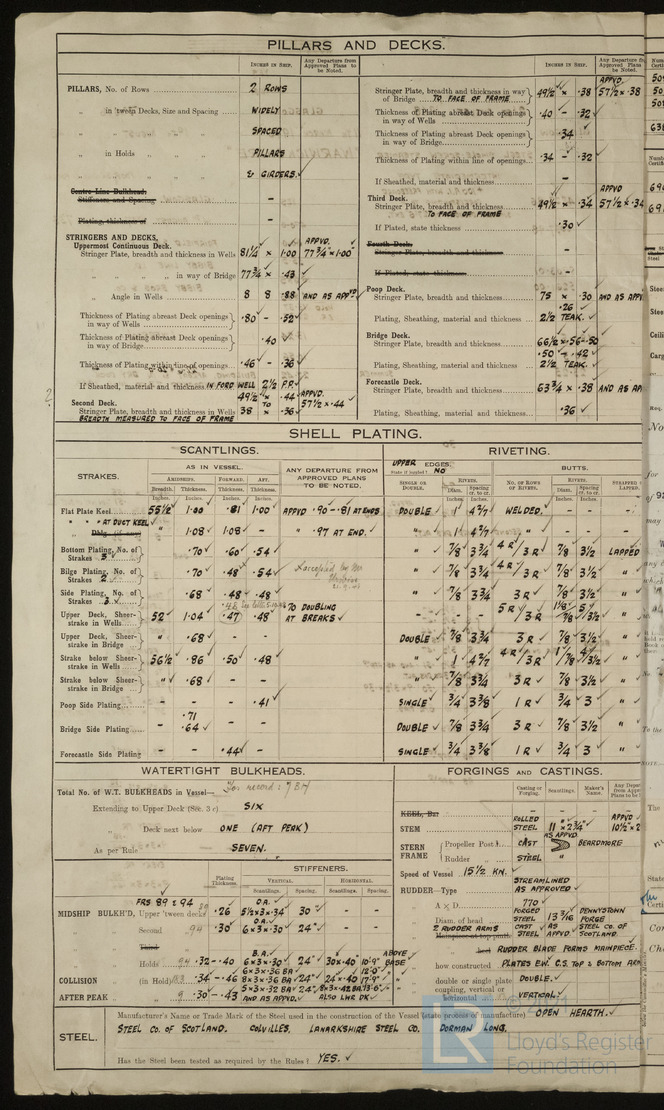 PILLARS AND DECKS.
INCHES IN SHIP. Any Departure from Approved Plans to be Noted.
PILLARS, No. of Rows 2 ROWS
„ in 'tween Decks, Size and Spacing WIDELY
„ „ „ SPACED
„ in Holds „ „ PILLARS
„ „ „ & GIRDERS.
Centre Line Bulkhead.
Stiffeners and Spacing -
Plating, thickness of -
STRINGERS AND DECKS,
Uppermost Continuous Deck.
Stringer Plate, breadth and thickness in Wells 81¼ × 1·00 APPVD. 77¾ × 1·00
„ „ „ in way of Bridge 77¾ × ·43
„ Angle in Wells 8 8 ·88 AND AS APPVD
Thickness of Plating abreast Deck openings in way of Wells ·80 - ·52
Thickness of Plating abreast Deck openings in way of Bridge ·40
Thickness of Plating within line of openings ·46 - ·36
If Sheathed, material and thickness IN FORD WELL 2½ P.P.
Second Deck. 49½ × ·44 TO APPVD. 57½ × ·44
Stringer Plate, breadth and thickness in Wells 38 × ·36
BREADTH MEASURED TO FACE OF FRAME
INCHES IN SHIP. Any Departure from Approved Plans to be Noted.
Stringer Plate, breadth and thickness in way of Bridge TO FACE OF FRAME 49½ × ·38 APPVD. 57½ × ·38
Thickness of Plating abreast Deck openings in way of Wells ·40 - ·32
Thickness of Plating abreast Deck openings in way of Bridge ·34
Thickness of Plating within line of openings ·34 - ·32
If Sheathed, material and thickness -
Third Deck.
Stringer Plate, breadth and thickness 49½ × ·34 APPVD 57½ × ·34
TO FACE OF FRAME
If Plated, state thickness ·30
Fourth Deck.
Stringer Plate, breadth and thickness -
If Plated, state thickness -
Poop Deck.
Stringer Plate, breadth and thickness 75 × ·30
Plating, Sheathing, material and thickness ·26 2½ TEAK.
Bridge Deck.
Stringer Plate, breadth and thickness 66½ × ·56-·50
Plating, Sheathing, material and thickness ·50 - ·42 2½ TEAK.
Forecastle Deck.
Stringer Plate, breadth and thickness 63¾ × ·38
Plating, Sheathing, material and thickness ·36
SHELL PLATING.
SCANTLINGS.
STRAKES.
AS IN VESSEL.
AMIDSHIPS. FORWARD. AFT.
Breadth. Thickness. Thickness. Thickness.
Inches. Inches. Inches. Inches.
ANY DEPARTURE FROM APPROVED PLANS TO BE NOTED.
Flat Plate Keel 55½ 1·00 ·81 1·00 APPVD ·90 - ·81 AT ENDS
„ „ „ AT DUCT KEEL „ 1·08 1·08 - „ ·97 AT END.
Bottom Plating, No. of Strakes 3 ·70 ·60 ·54
Bilge Plating, No. of Strakes 2 ·70 ·48 ·54
Side Plating, No. of Strakes 3 ·68 ·48 ·48
Upper Deck, Sheerstrake in Wells 52 1·04 ·47 ·48 TO DOUBLING AT BREAKS
Upper Deck, Sheerstrake in Bridge „ ·68 - -
Strake below Sheerstrake in Wells 56½ ·86 ·50 ·48
Strake below Sheerstrake in Bridge „ ·68 - -
Poop Side Plating - - - ·41
Bridge Side Plating ·71 ·64 - -
Forecastle Side Plating - - ·44 -
RIVETING.
UPPER EDGES. NO
SINGLE OR DOUBLE. RIVETS. Diam. Spacing cr. to cr.
BUTTS.
NO. OF ROWS OF RIVETS. RIVETS. Diam. Spacing cr. to cr. STRAPPED LAPPED
DOUBLE 1 4 2/7 WELDED. - - -
„ 1 4 2/7 „ - - -
„ 7/8 3¾ 4R/3R 7/8 3½ LAPPED
„ 7/8 3¾ 4R/3R 7/8 3½ „
„ 7/8 3¾ 3R 7/8 3½ „
- - - 5R/3R
DOUBLE 7/8 3¾ 3R 7/8 3½ „
„ 1 4 2/7 4R/3R 1/7/8 4/3½ „
„ 7/8 3¾ 3R 7/8 3½ „
SINGLE ¾ 3 3/8 1R ¾ 3 „
DOUBLE 7/8 3¾ 3R 7/8 3½ „
SINGLE ¾ 3 3/8 1R ¾ 3 „
WATERTIGHT BULKHEADS.
Total No. of W.T. BULKHEADS in Vessel— For record: 7 BH
Extending to Upper Deck (Sec. 3 c) SIX
„ Deck next below ONE (AFT PEAK)
As per Rule SEVEN.
STIFFENERS.
Plating Thickness. VERTICAL. HORIZONTAL.
Scantlings. Spacing. Scantlings. Spacing.
FRS 89 & 94
MIDSHIP BULKH'D, Upper 'tween decks ·26 O.A. 5½×3×·34 30" - -
„ Second „ 94 ·30 O.A. 6×3×·30 24" - -
„ Third
„ Holds 94 ·32 - ·40 B.A. 6×3×·30 24" 30×·40 10'-9" ABOVE BASE
COLLISION „ (in Hold) ·34 - ·46 6×3×·36 BA 24"
AFTER PEAK „ 9 ·30 - ·43 AND AS APPVD. ALSO LWR DK
FORGINGS AND CASTINGS.
Casting or Forging. Scantlings. Maker's Name.
KEEL, Bar - - -
STEM ROLLED STEEL 11 × 2¾" APPVD
STERN FRAME { Propeller Post CAST AS APPVD. BEARDMORE
Rudder „ STEEL „
Speed of Vessel 15½ KN.
RUDDER—Type STREAMLINED AS APPROVED
A × D 770
Diam. of head FORGED STEEL 13 3/16 DENNYSTOWN FORGE
2 RUDDER ARMS CAST STEEL AS APPVD STEEL CO. OF SCOTLAND.
RUDDER BLADE FORMS MAINPIECE.
how constructed PLATES E.W. C.S. TOP & BOTTOM ARM
double or single plate DOUBLE.
coupling, vertical or horizontal VERTICAL.
STEEL.
Manufacturer's Name or Trade Mark of the Steel used in the construction of the Vessel (state process of manufacture) OPEN HEARTH.
STEEL CO. OF SCOTLAND. COLVILLES. LANARKSHIRE STEEL CO. DORMAN LONG.
Has the Steel been tested as required by the Rules? YES.
LR
Lloyd's Register
Foundation